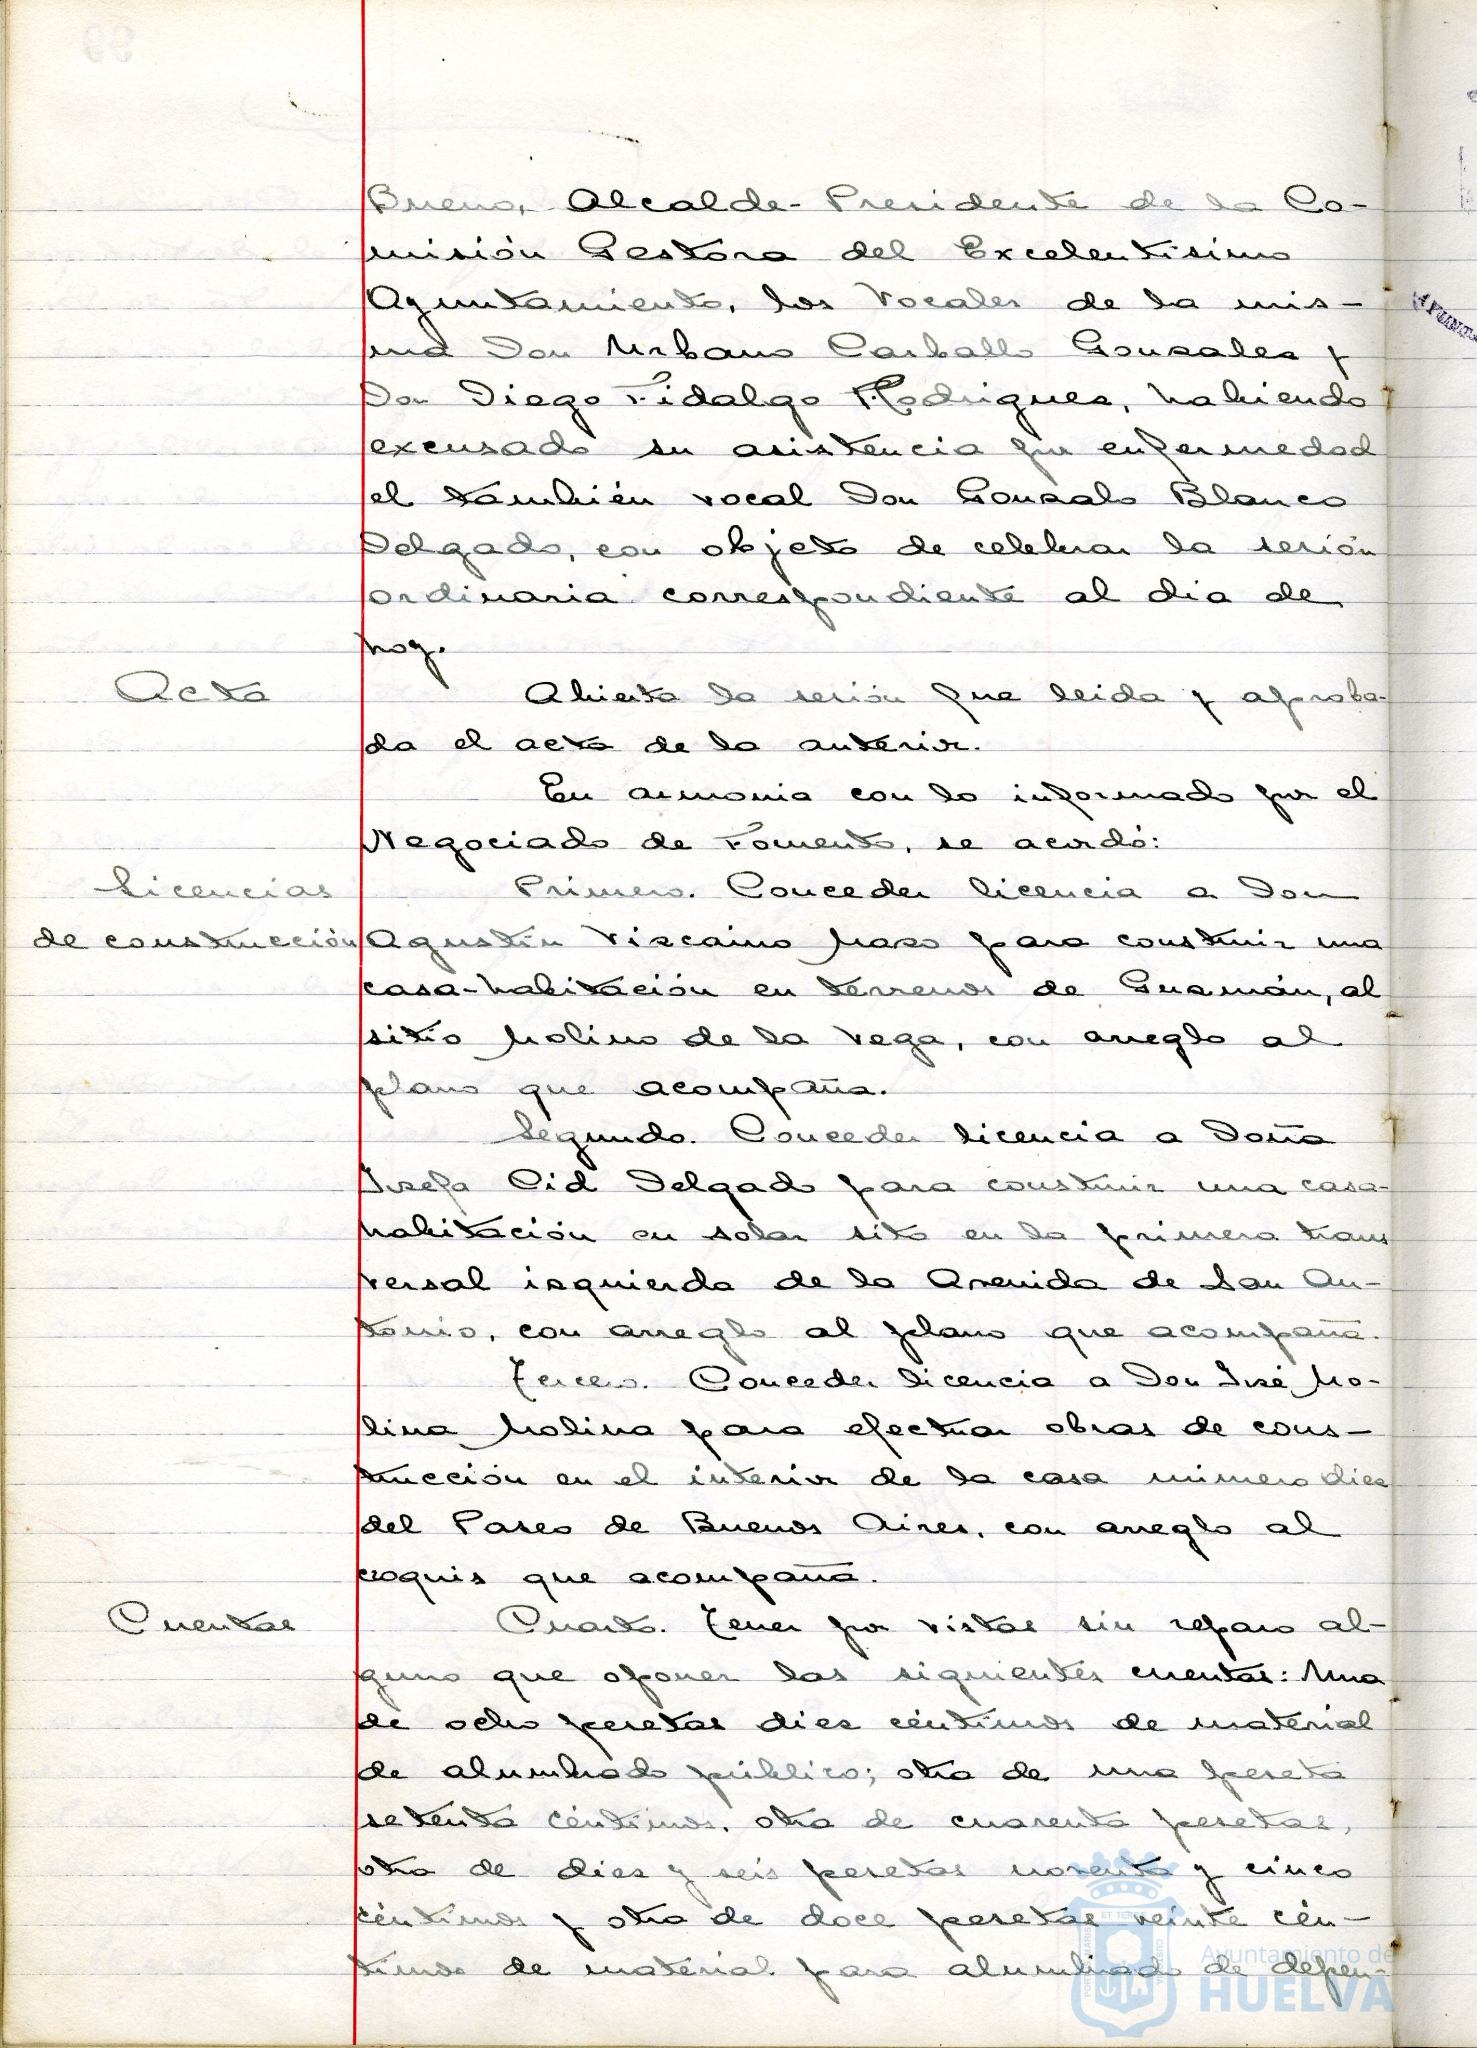 Bueno, Alcalde-Presidente de la Co-
misión Gestora del Excelentisimo
Ayuntamiento, los Vocales de la mis-
ma Don Urbano Carballo Gonzalez y
Don Diego Fidalgo Rodriguez, habiendo
excusado su asistencia por enfermedad
el también vocal Don Gonzalo Blanco
Delgado, con objeto de celebrar la sesión
ordinaria correspondiente al dia de
hoy.
Acta
Abierta la sesión fue leida y aproba-
da el acta de la anterior.
En armonia con lo informado por el
Negociado de Fomento, se acordó:
Licencias
de construcción
Primero. Conceder licencia a Don
Agustín Vizcaino Mazo para construir una
casa-habitación en terrenos de Guzmán, al
sitio Molino de la Vega, con arreglo al
plano que acompaña.
Segundo. Conceder licencia a Doña
Josefa Cid Delgado para construir una casa-
habitación en solar sito en la primera trans
versal izquierda de la Avenida de San An-
tonio, con arreglo al plano que acompaña.
Tercero. Conceder licencia a Don José Mo-
lina Molina para efectuar obras de cons-
trucción en el interior de la casa número diez
del Paseo de Buenos Aires, con arreglo al
croquis que acompaña.
Cuentas
Cuarto. Tener por vistas sin reparo al-
guno que oponer las siguientes cuentas: Una
de ocho pesetas diez céntimos de material
de alumbrado público; otra de una peseta
setenta céntimos, otra de cuarenta pesetas,
otra de diez y seis pesetas noventa y cinco
céntimos y otra de doce pesetas veinte cén-
timos de material para alumbrado de depen-
Ayuntamiento de
HUELVA